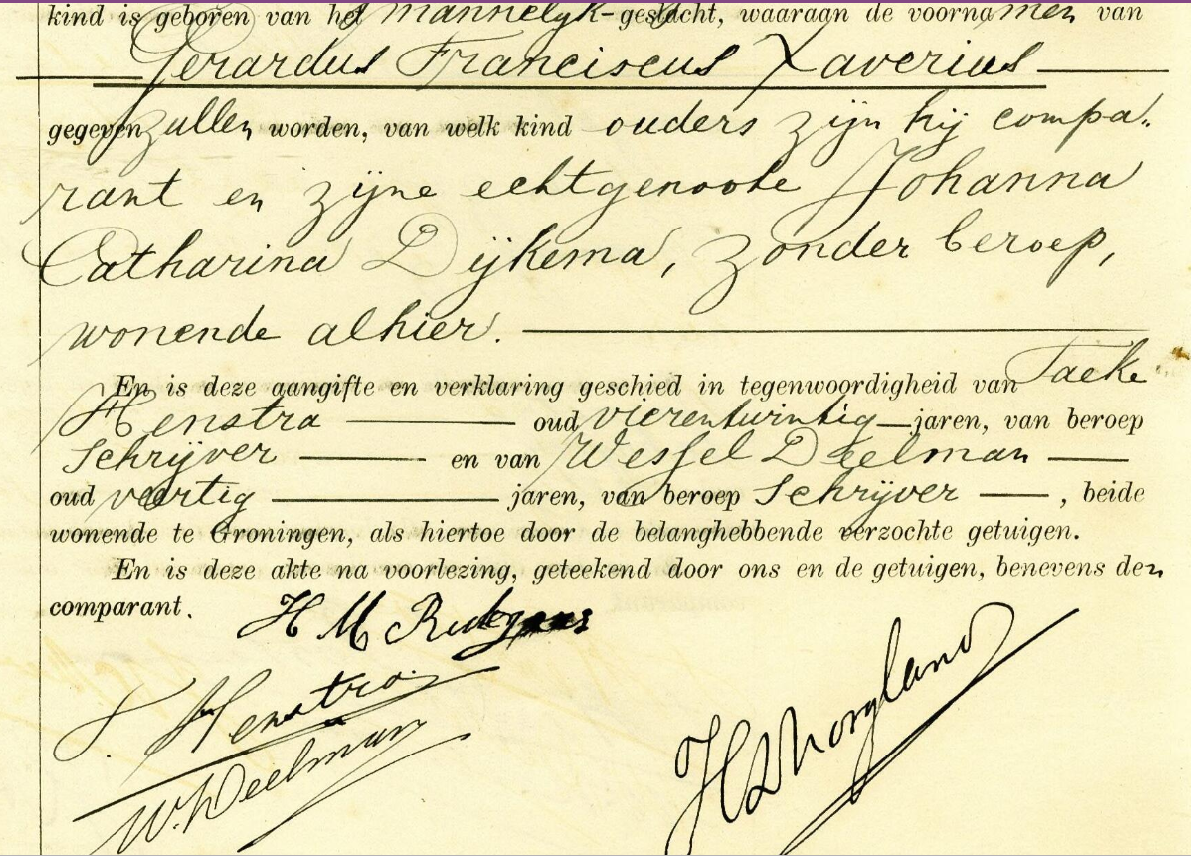 kind is geboren van het mannelyk-geslacht, waaraan de voornamen van
Gerardus Franciscus Xaverius
gegeven zullen worden, van welk kind ouders zijn hij compa-
rant en zijne echtgenoote Johanna
Catharina Dijkema, zonder beroep,
wonende alhier.
En is deze aangifte en verklaring geschied in tegenwoordigheid van Taeke
Henstra oud vierentwintig jaren, van beroep
Schrijver en van Wessel Deelman
oud veertig jaren, van beroep Schrijver, beide
wonende te Groningen, als hiertoe door de belanghebbende verzochte getuigen.
En is deze akte na voorlezing, geteekend door ons en de getuigen, benevens den
comparant.
H M
T. Henstra
W. Deelman